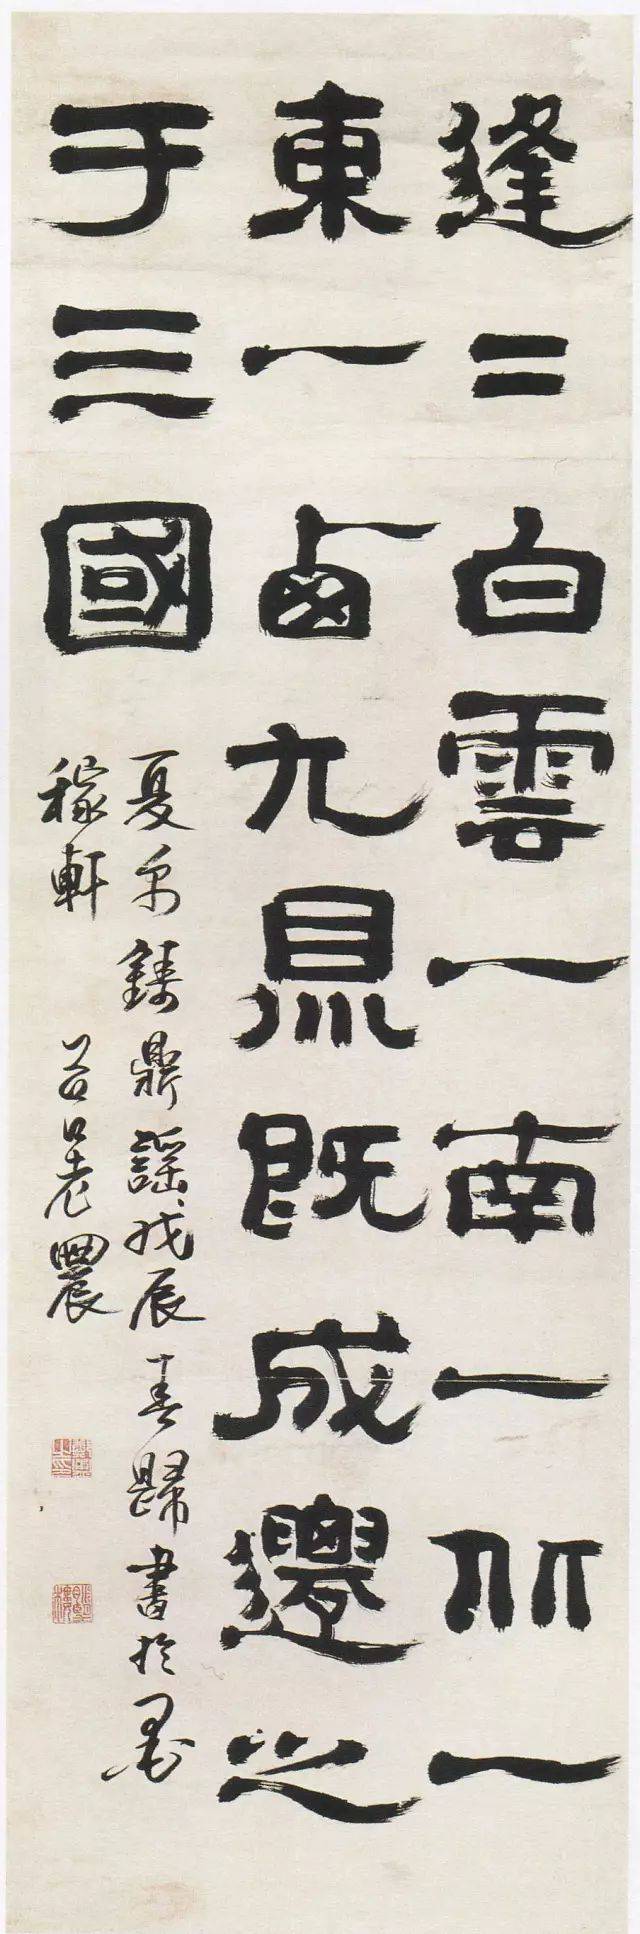 逢〻白雲一南一北一
東一西九鼎既成遷之
于三國
夏鼎鑄鼎謠戊辰春歸書於墨
稼軒
呂老農